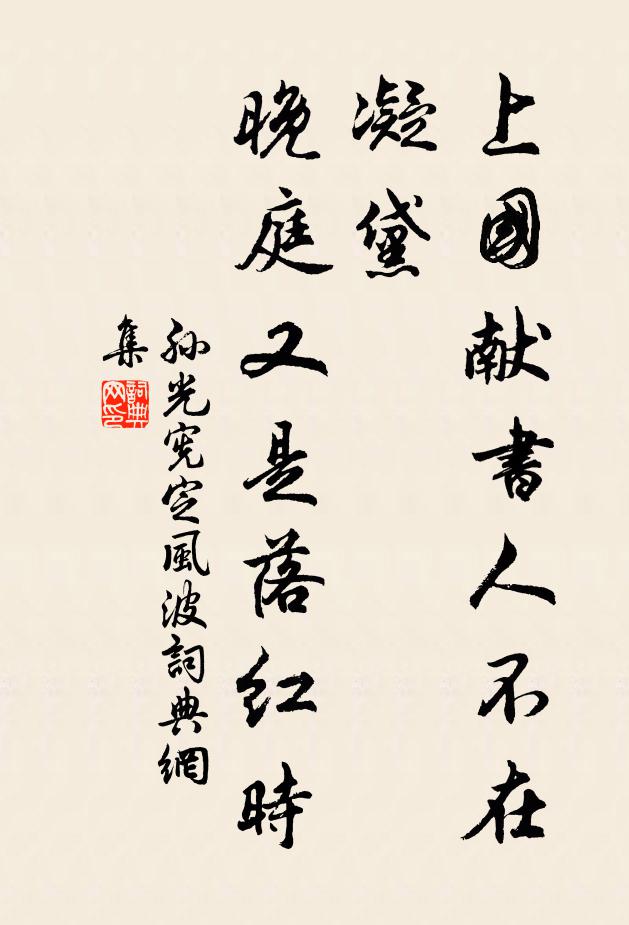 上國献書人不在
凝黛
晚庭又是落紅時
孙光宪定風波詞典網
集
詞典
网印